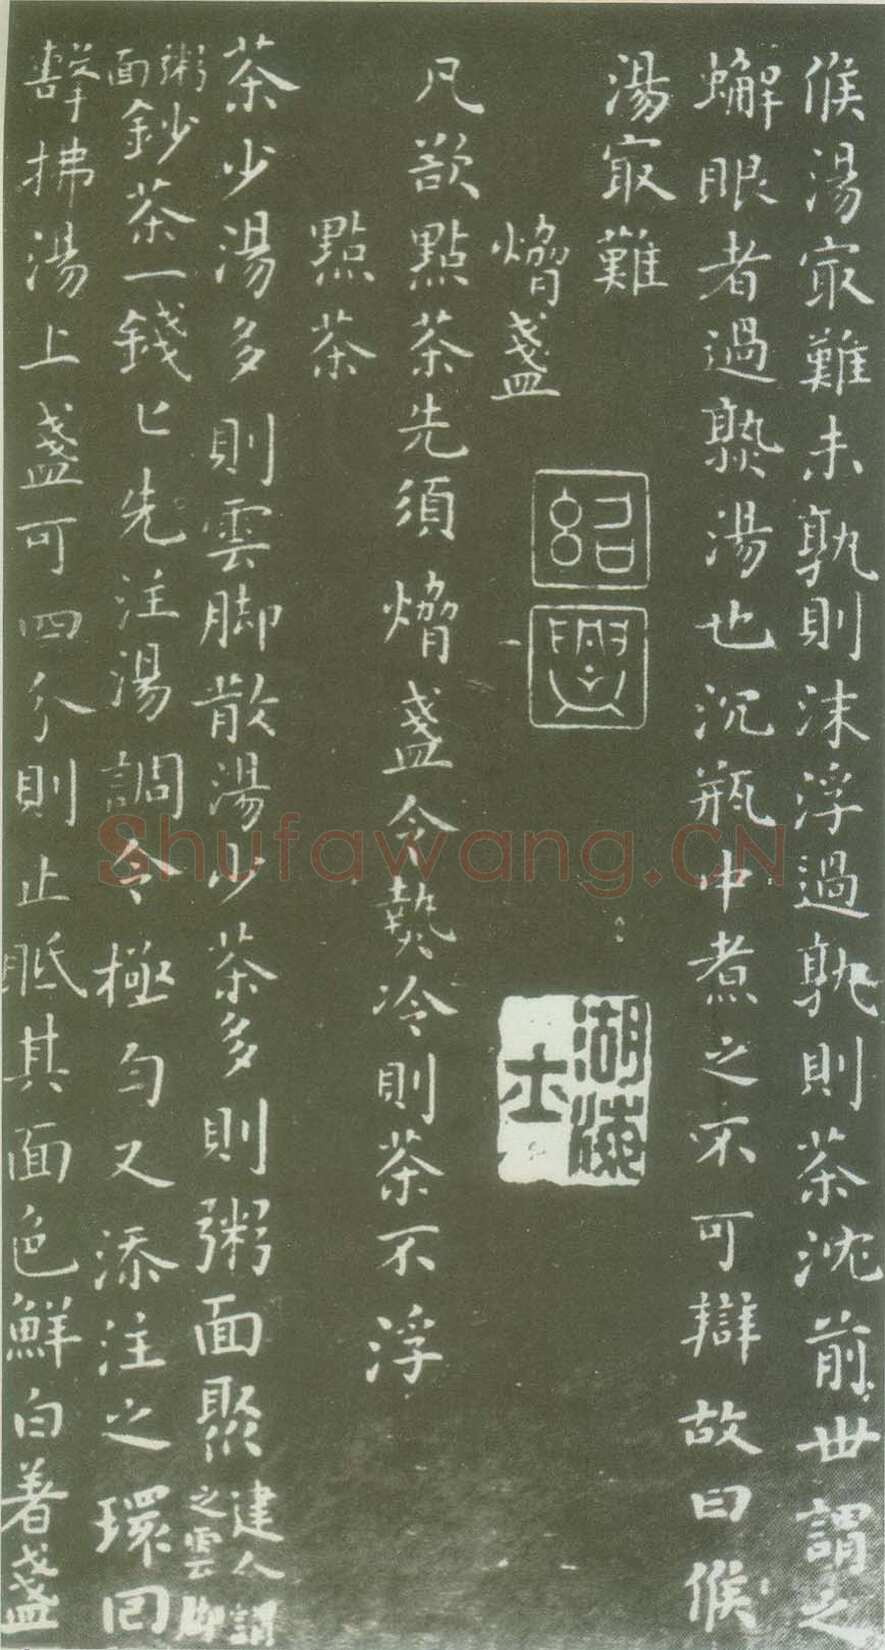 候湯㝡難未孰則沫浮過孰則茶沈前世謂之
蠏眼者過熟湯也沉瓶中煮之不可辯故曰候
湯㝡難
熁盞
紹興
凡欲點茶先須熁盞令熱冷則茶不浮
點茶
茶少湯多則雲脚散湯少茶多則粥面聚建人謂之雲脚
粥面鈔茶一錢匕先注湯調令極勻又添注之環回
擊拂湯上盞可四分則止眡其面色鮮白著盞
Shufawang.CN